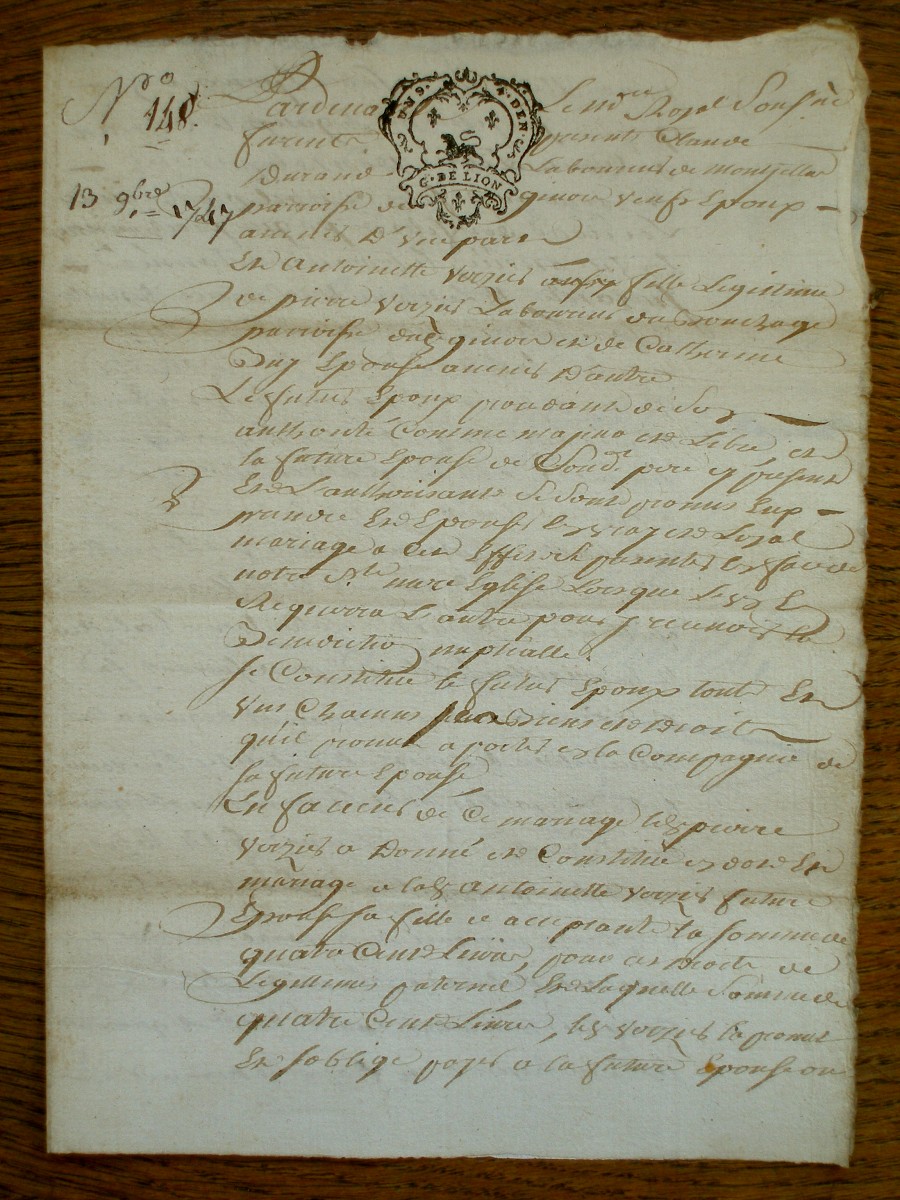 Nro
148
13 9bre 1747
Pardevant Le no.re Royal Soussigné
furent présents Claude
Durand Laboureur de
parroisse de veuf Epoux
UN S. 4 DEN.
G. DE LION
advenir D'une part
Et Antoinette Verzier aussy fille Legitime
de pierre Verzier Laboureur du
parroisse dud. et de Catherine
Epouse advenir D'autre
Le futur Epoux procedant de Son
authorité Comme majeur et Libre, et
la future Epouse de Sond. pere cy present
Et L'authorisant Se Sont promis
prandre Et Epouser En vray et Loyal
mariage a cet Effet Se presenter En face de
notre S.te mere Eglise Lorsque L'un
Requerra L'autre pour y recevoir la
Benediction nuptialle.
Se Constitue le futur Epoux toute Et
un Chacuns biens et Droits
quil promet aporter en la Compagnie de
la future Epouse
En faveur de Ce mariage led. pierre
Verzier a Donné et Constitué en dot Et
mariage a lad. Antoinette Verzier future
Epouse Sa fille ce acceptante la Somme de
quatre Cent Livres, pour Ses Droits de
Legitimes paternel Et Laquelle Somme de
quatre Cent Livres, led. Verzier la promet
Et Soblige payer a la future Epouse ou